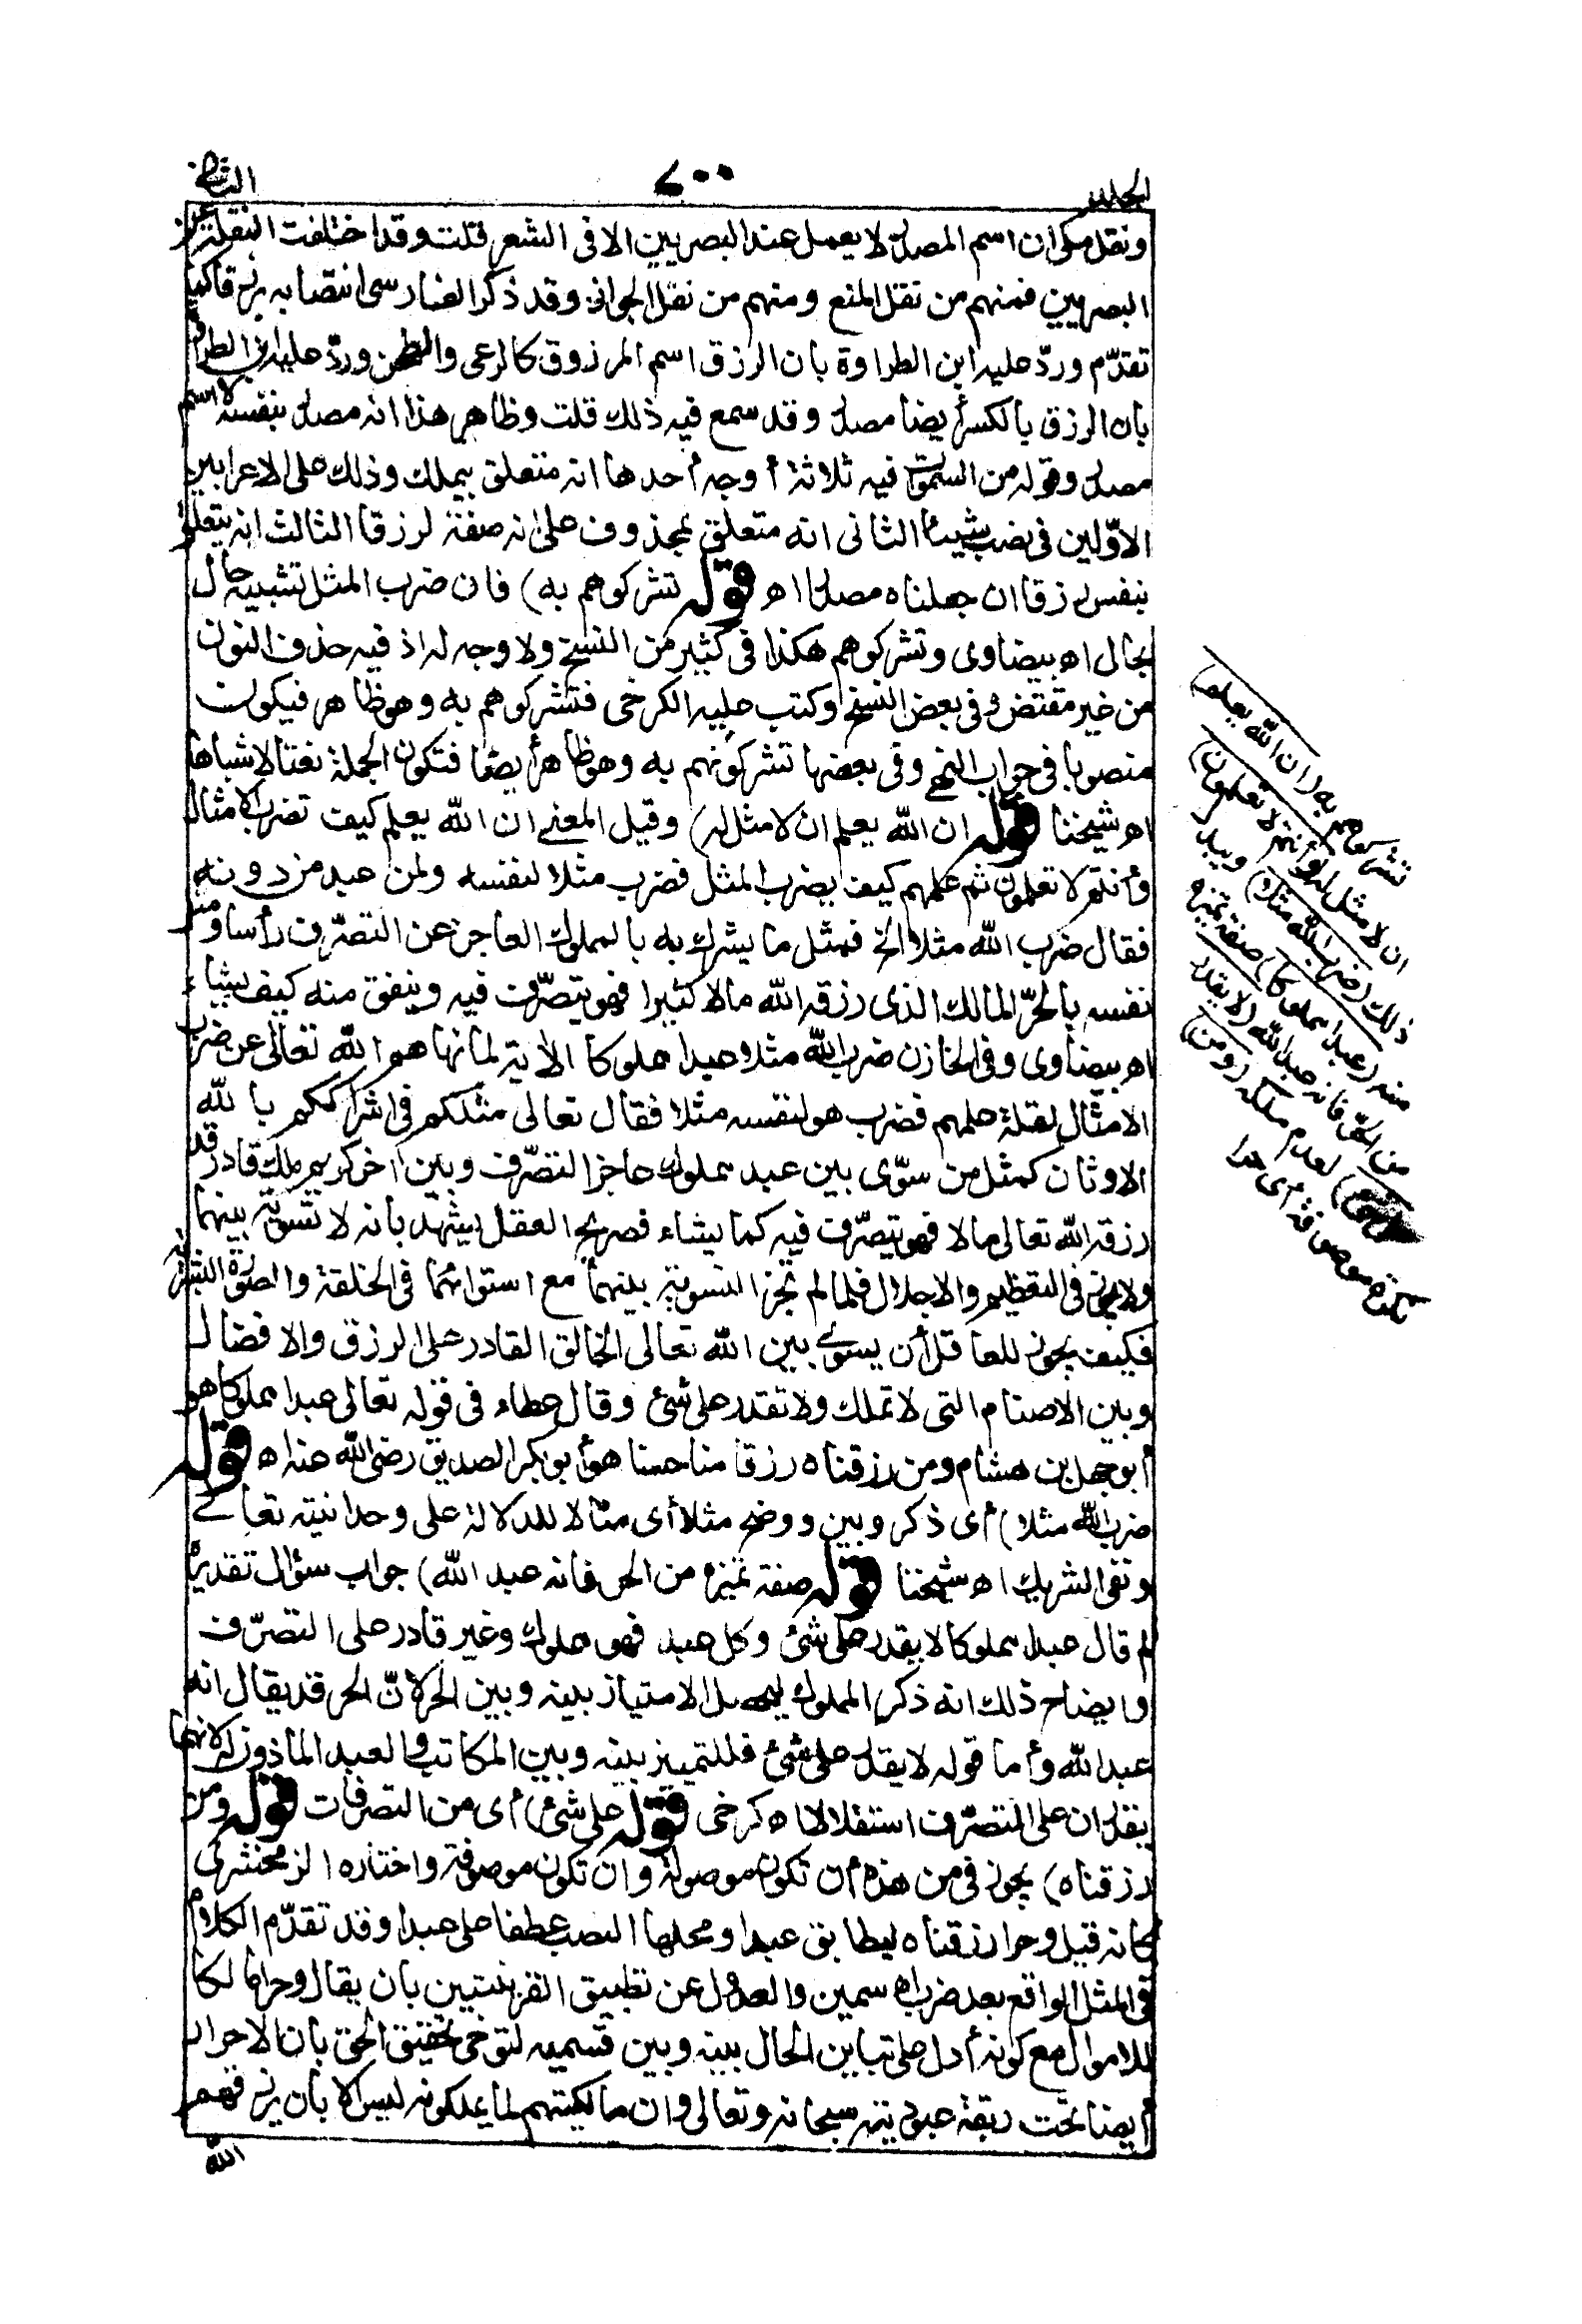 الجلد
٧٠٠
الثانى
ونقل مكى ان اسم المصدر لا يعمل عند البصريين الا فى الشعر قلت وقد اختلفت النقلة عن
البصريين فمنهم من نقل المنع ومنهم من نقل الجواز وقد ذكر الفارسى انتصابه برزقا كما
تقدّم وردّ عليه ابن الطراوة بان الرزق اسم المرزوق كالرعى والطحن وردّ على ابن الطراوة
بان الرزق بالكسر أيضا مصدر وقد سمع فيه ذلك قلت وظاهر هذا انه مصدر بنفسه لا اسم
مصدر وقوله من السموات فيه ثلاثة أوجه أحدها انه متعلق بيملك وذلك على الاعرابين
الاوّلين فى نصب شيئا الثانى انه متعلق بمحذوف على انه صفة لرزقا الثالث انه يتعلق
بنفس رزقا ان جعلناه مصدرا اه قوله تشركوهم به) فان ضرب المثل تشبيه حال
بحال اه بيضاوى وتشركوهم هكذا فى كثير من النسخ ولا وجه له اذ فيه حذف النون
من غير مقتض وفى بعض النسخ وكتب عليه الكرخى فتشركوهم به وهو ظاهر فيكون
منصوبا فى جواب النهى وفى بعضها تشركونهم به وهو ظاهر أيضا فتكون الجملة نعتا لاشباها
اه شيخنا قوله ان الله يعلم ان لا مثل له) وقيل المعنى ان الله يعلم كيف تضرب الامثال
وأنتم لا تعلمون ثم علمهم كيف يضرب المثل فضرب مثلا لنفسه ولمن عبد من دونه
فقال ضرب الله مثلا الخ فمثل ما يشرك به بالمملوك العاجز عن التصرّف رأسا ومثل
نفسه بالحرّ المالك الذى رزقه الله مالا كثيرا فهو يتصرّف فيه وينفق منه كيف يشاء
اه بيضاوى وفى الخازن ضرب الله مثلا عبدا مملوكا الآية لما نهاهم الله تعالى عن ضرب
الامثال لقلة علمهم فضرب هو لنفسه مثلا فقال تعالى مثلكم فى اشراككم بالله
الاوثان كمثل من سوّى بين عبد مملوك عاجز التصرّف وبين آخر كريم ملك قادر قد
رزقه الله تعالى مالا فهو يتصرّف فيه كما يشاء فصريح العقل يشهد بانه لا تسوية بينهما
ولا يجوز فى التعظيم والاجلال فلما لم تجز التسوية بينهما مع استوائهما فى الخلقة والصورة البشرية
فكيف يجوز للعاقل أن يسوى بين الله تعالى الخالق القادر على الرزق والافضال
وبين الاصنام التى لا تملك ولا تقدر على شئ وقال عطاء فى قوله تعالى عبدا مملوكا هو
أبو جهل بن هشام ومن رزقناه رزقا منا حسنا هو أبو بكر الصديق رضى الله عنه اه قوله
ضرب الله مثلا) أى ذكر وبين ووضح مثلا أى مثالا للدلالة على وحدانيته تعالى
ونفى الشريك اه شيخنا قوله صفة تميزه من الحر فانه عبد الله) جواب سؤال تقديره
لم قال عبدا مملوكا لا يقدر على شئ وكل عبد فهو مملوك وغير قادر على التصرّف
وايضاح ذلك انه ذكر المملوك ليحصل الامتياز بينه وبين الحر لانّ الحر قد يقال انه
عبد الله وأما قوله لا يقدر على شئ فللتمييز بينه وبين المكاتب والعبد المأذون له لانهما
يقدران على التصرّف استقلالا اه كرخى قوله على شئ) أى من التصرفات قوله ومن
رزقناه) يجوز فى من هذه أن تكون موصولة وان تكون موصوفة واختاره الزمخشرى
كانه قيل وحرا رزقناه ليطابق عبدا ومحلها النصب عطفا على عبدا وقد تقدّم الكلام
فى المثل الواقع بعد ضرب اه سمين والعدول عن تطبيق القرينتين بان يقال وحرا مالكا
للاموال مع كونه أدل على تباين الحال بينه وبين قسيمه لتوخى تحقيق الحق بان الاحرار
أيضا تحت ربقة عبوديته سبحانه وتعالى وان مالكيتهم لما يملكونه ليس الا بان يرزقهم
الله
تشركوهم به (ان الله يعلم)
ان لا مثل له (وأنتم لا تعلمون)
ذلك (ضرب الله مثلا) ويبدل
منه (عبدا مملوكا) صفة تميزه
من الحر فانه عبد الله (لا يقدر
على شئ) لعدم ملكه (ومن)
نكرة موصوفة أى حرا